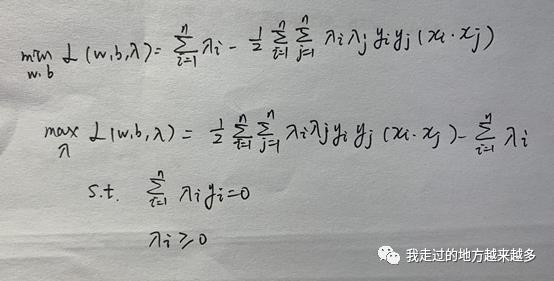 min L(w,b,λ) = ∑_{i=1}^{n} λi - 1/2 ∑_{i=1}^{n} ∑_{j=1}^{n} λi λj yi yj (xi·xj)
w.b
max L(w,b,λ) = 1/2 ∑_{i=1}^{n} ∑_{j=1}^{n} λi λj yi yj (xi·xj) - ∑_{i=1}^{n} λi
λ
s.t. ∑_{i=1}^{n} λi yi = 0
λi ≥ 0
我走过的地方越来越多